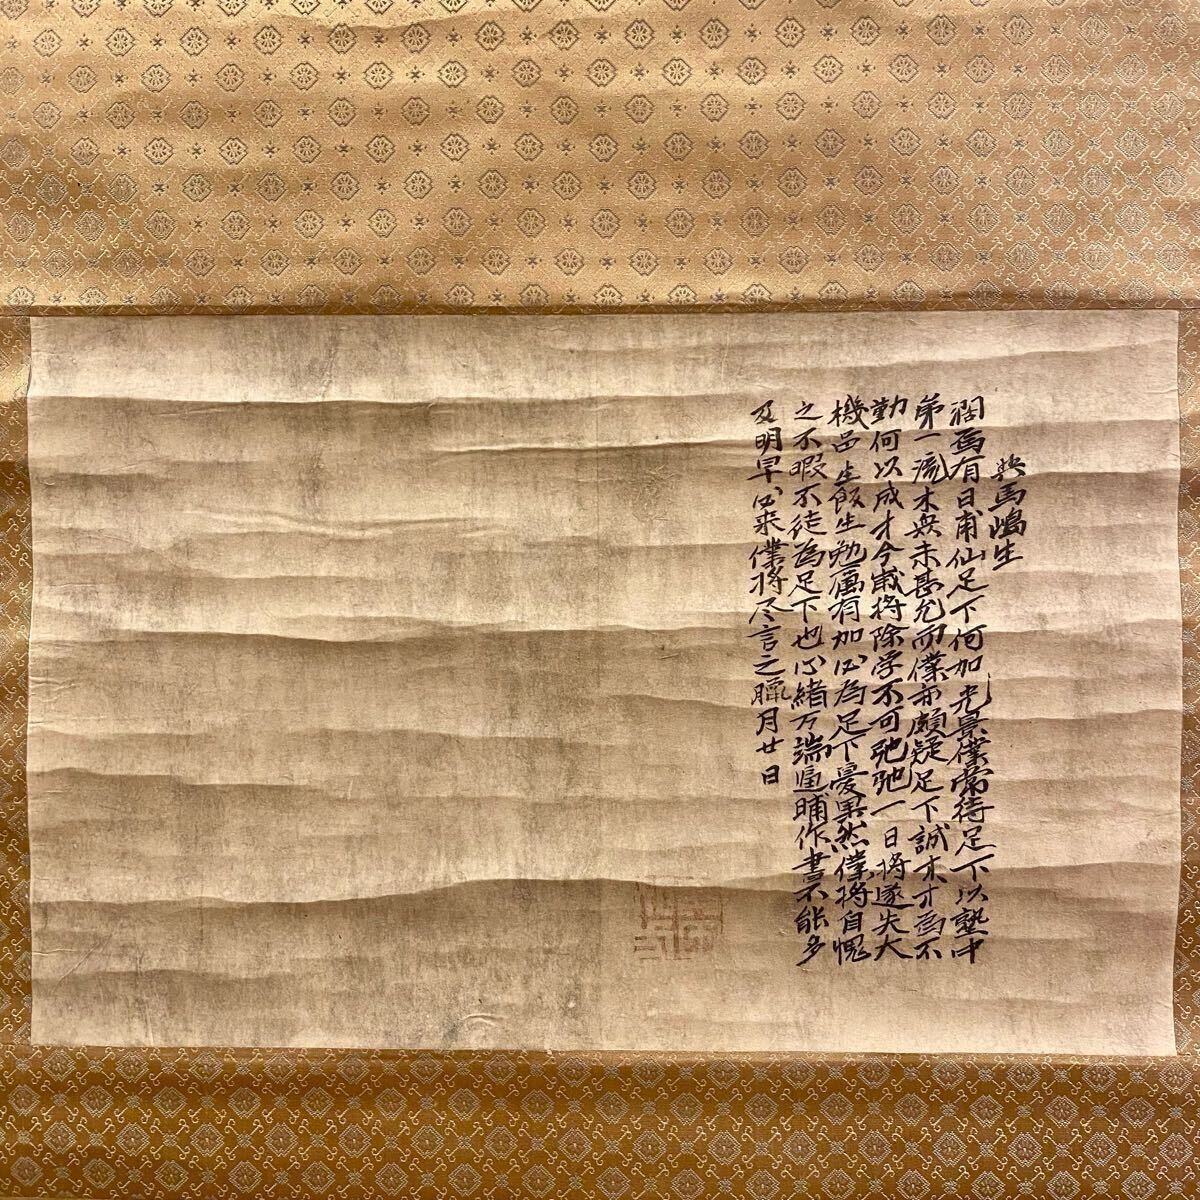 與馬嶋生
濶焉有日甫仙足下何如光景僕常待足下以塾中
第一流無未甚允而僕亦頗疑足下誠才為不
勤何以成才今歳将除学不可弛弛一日将遂失大
機品生飯生勉厲有加必為足下憂果然僕将自愧
之不暇不徒為足下也心緒万端晡作書不能多
及明早必来僕将尽言之臘月廿日